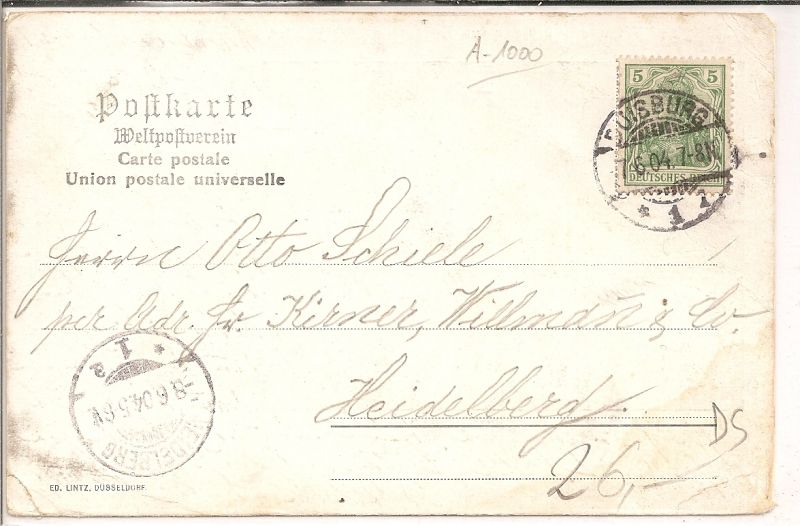 A-1000
5 5
DEUTSCHES REICH
DUISBURG
6.04.7-8V
* 1 1
Postkarte
Weltpostverein
Carte postale
Union postale universelle
Herrn Otto Schiele
per Adr. Fr. Kirner, Willmann & Co.
Heidelberg
HEIDELBERG
8.6.04.5-6V
* 1 a
DS
26,-
ED. LINTZ, DÜSSELDORF.